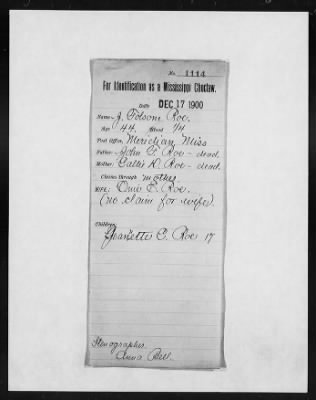 No. 1114
For Identification as a Mississippi Choctaw.
Date DEC 17 1900
Name J. Folsom Roe.
Age 44 Blood 1/4
Post Office, Meridian, Miss
Father: John F. Roe - dead.
Mother: D. Roe - dead.
Claims through mother
Wife: E. Roe.
(no claim for wife).
Children:
Jeanette C. Roe 17
Stenographer
Anna Bell.